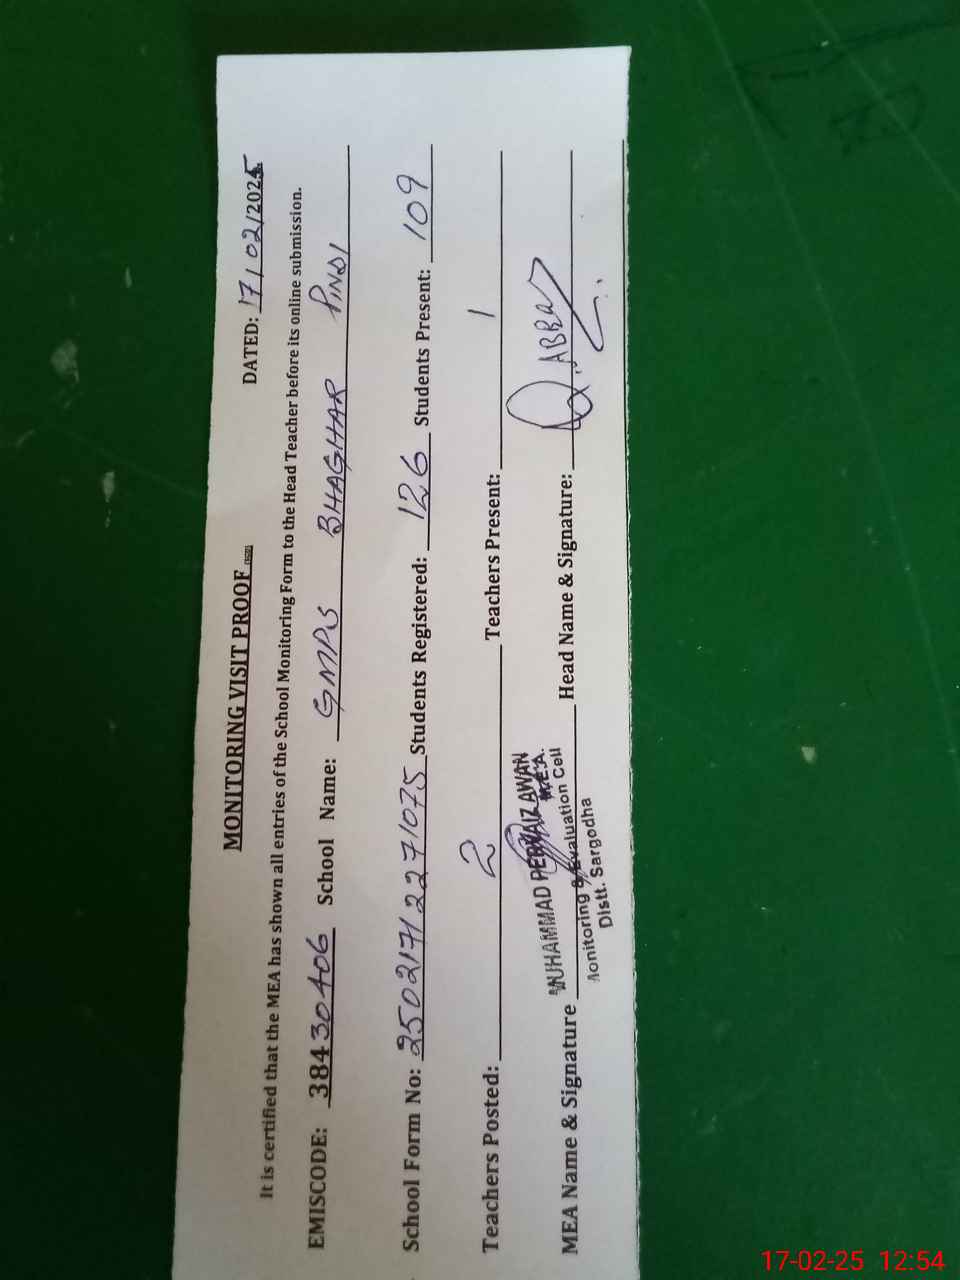 MONITORING VISIT PROOF
DATED: 17/02/2025
It is certified that the MEA has shown all entries of the School Monitoring Form to the Head Teacher before its online submission.
EMISCODE: 38430406 School Name: GMPS BHAGHAR PINDI
School Form No: 25021712271075 Students Registered: 126 Students Present: 109
Teachers Posted: 2 Teachers Present: 1
MEA Name & Signature MUHAMMAD PERVAIZ AWAN Head Name & Signature: Q. ABBAS
M.E.A.
Monitoring & Evaluation Cell
Distt. Sargodha
17-02-25 12:54